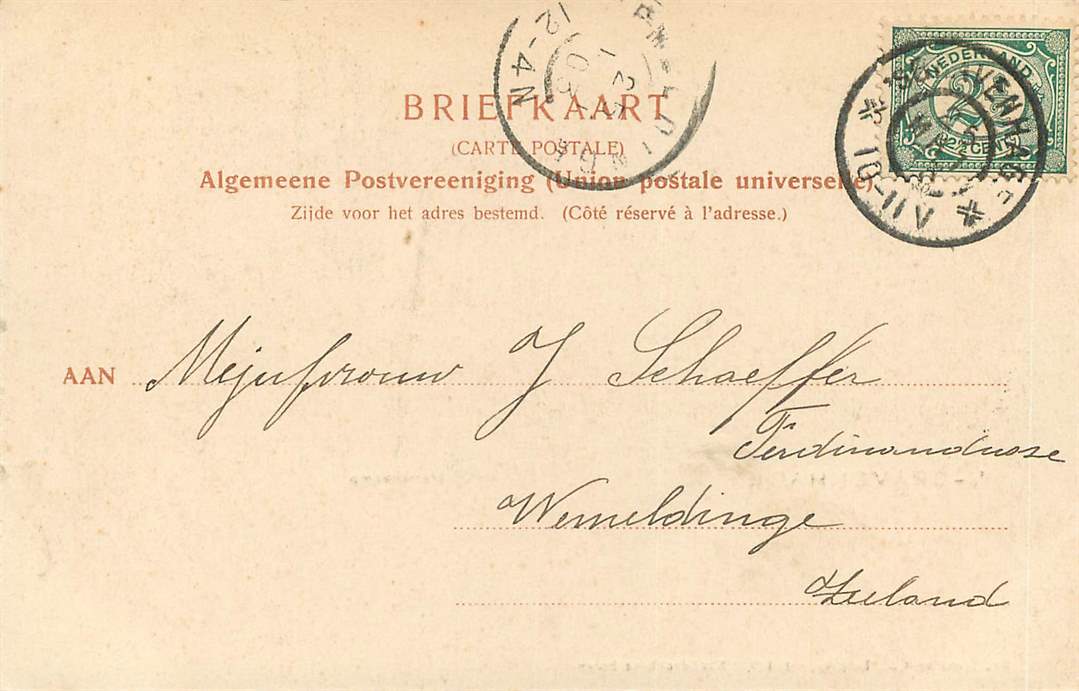 BRIEFKAART
(CARTE POSTALE)
Algemeene Postvereeniging (Union postale universelle)
Zijde voor het adres bestemd. (Côté réservé à l'adresse.)
NEDERLAND
2½ CENT
10-11 V
12-4N
AAN Mejufvrouw J Schaeffer
Wemeldinge
Zeeland